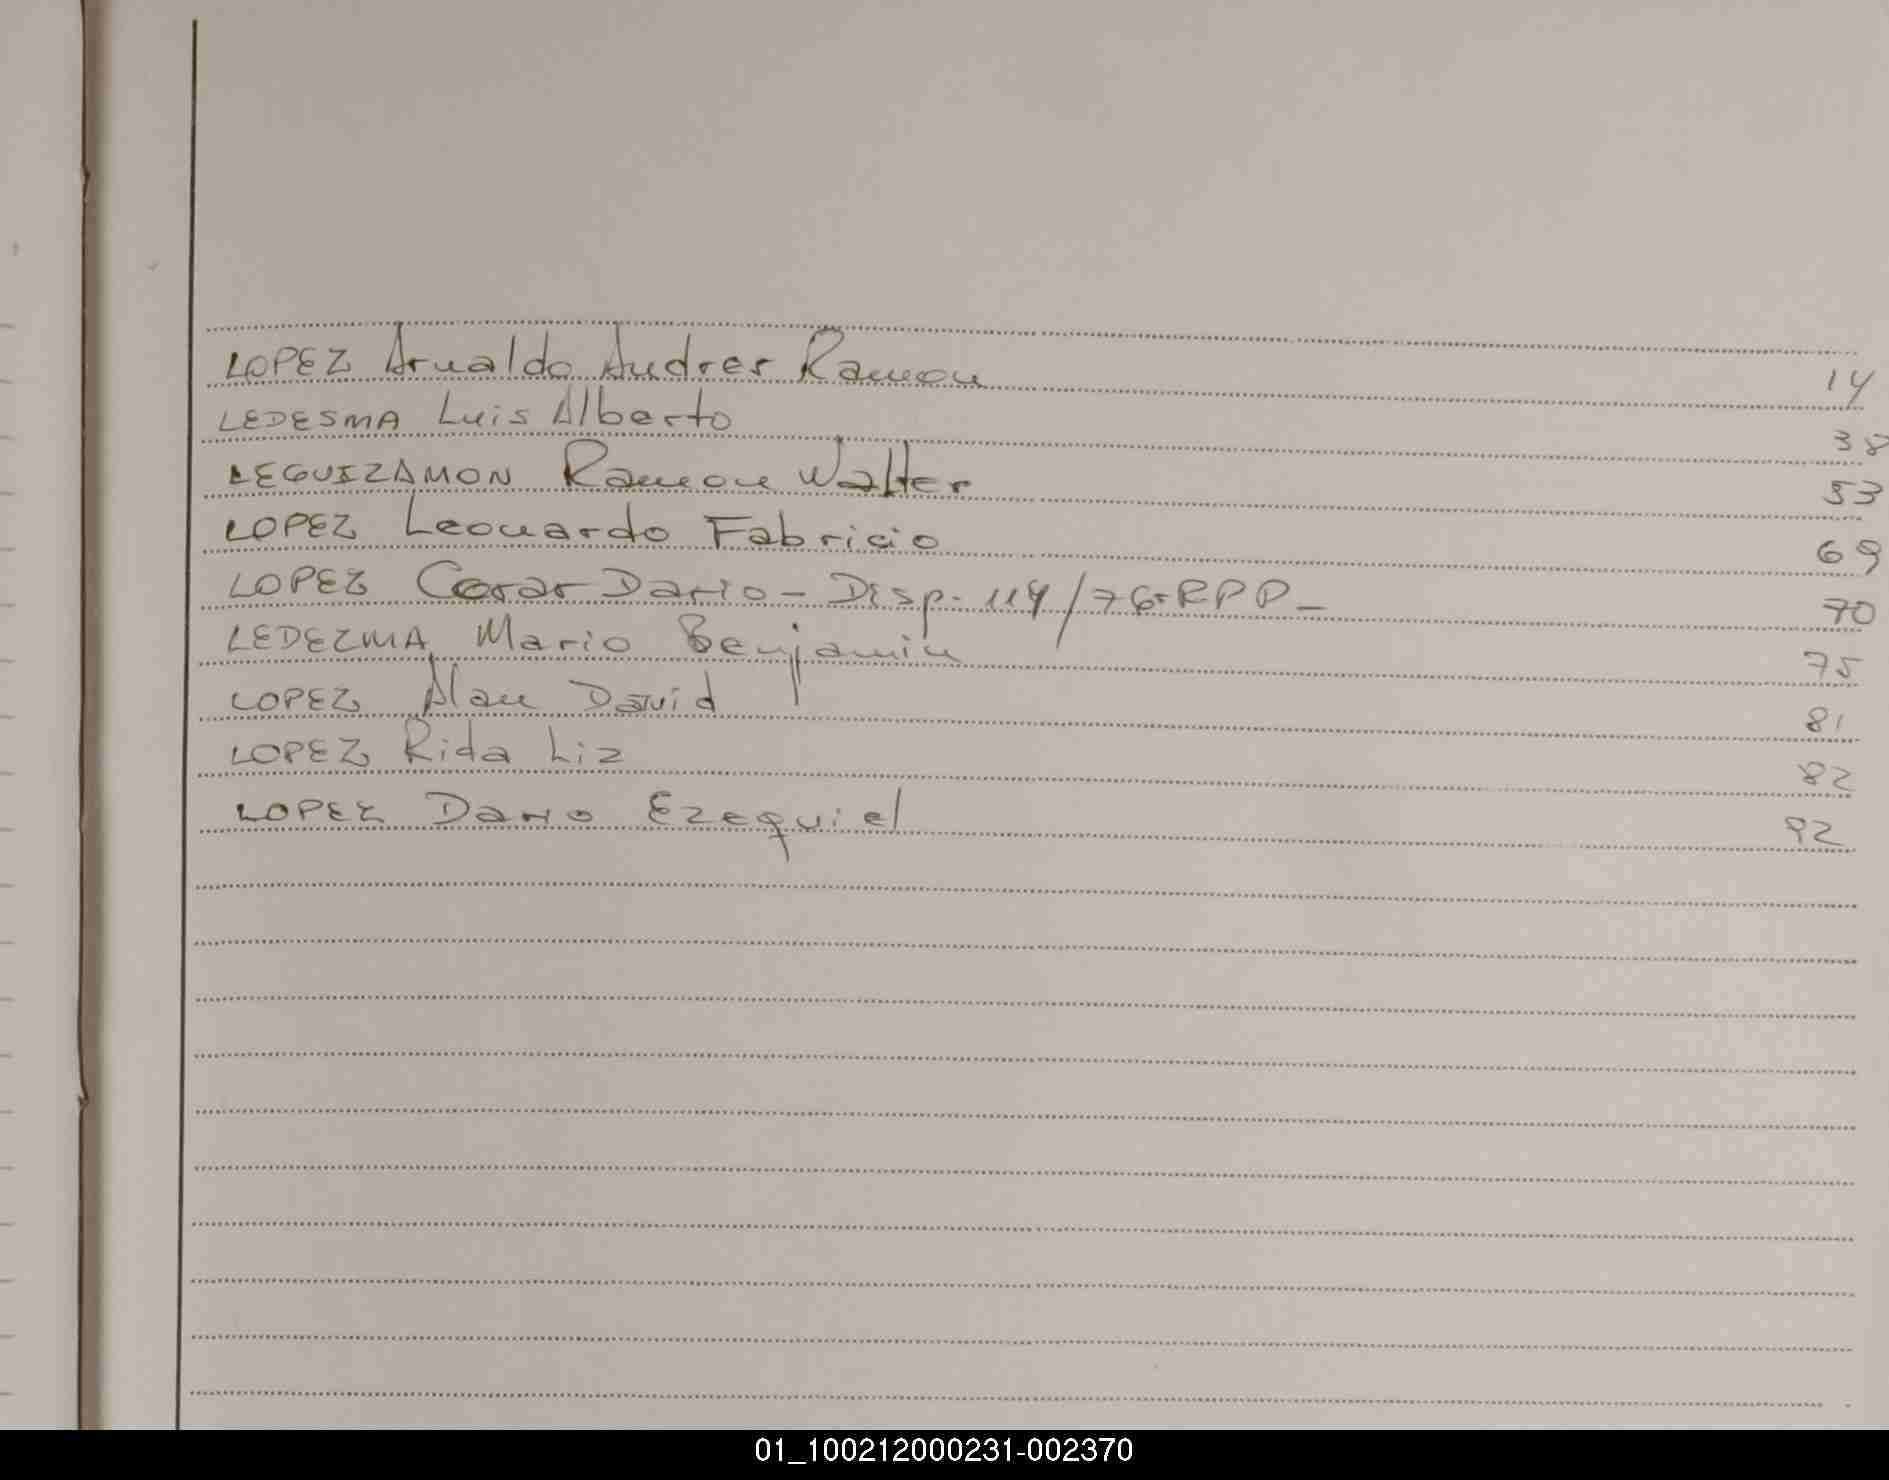 LOPEZ Arnaldo Andres Ramon 14
LEDESMA Luis Alberto 38
LEGUIZAMON Ramon Walter 53
LOPEZ Leonardo Fabricio 69
LOPEZ Cesar Dario - Disp. 114/76-RPP- 70
LEDEZMA Mario Benjamin 75
LOPEZ Alan David 81
LOPEZ Rida Liz 82
LOPEZ Dario Ezequiel 92
01_100212000231-002370